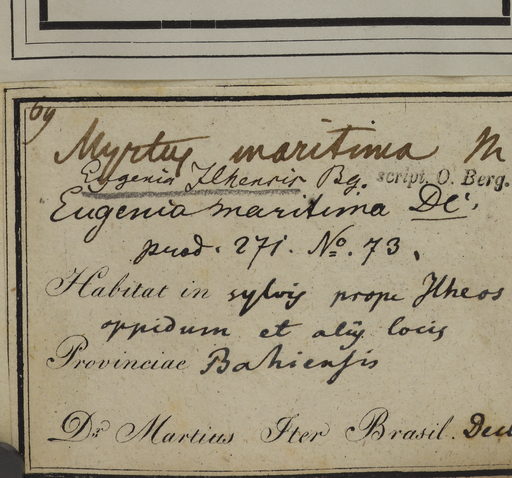 69
Myrtus maritima M
Eugenia Ilhensis Bg. script. O. Berg.
Eugenia maritima DC.
prod. 271. No. 73.
Habitat in sylvis prope Ilheos
oppidum et aliis locis
Provinciae Bahiensis
Dr Martius Iter Brasil.